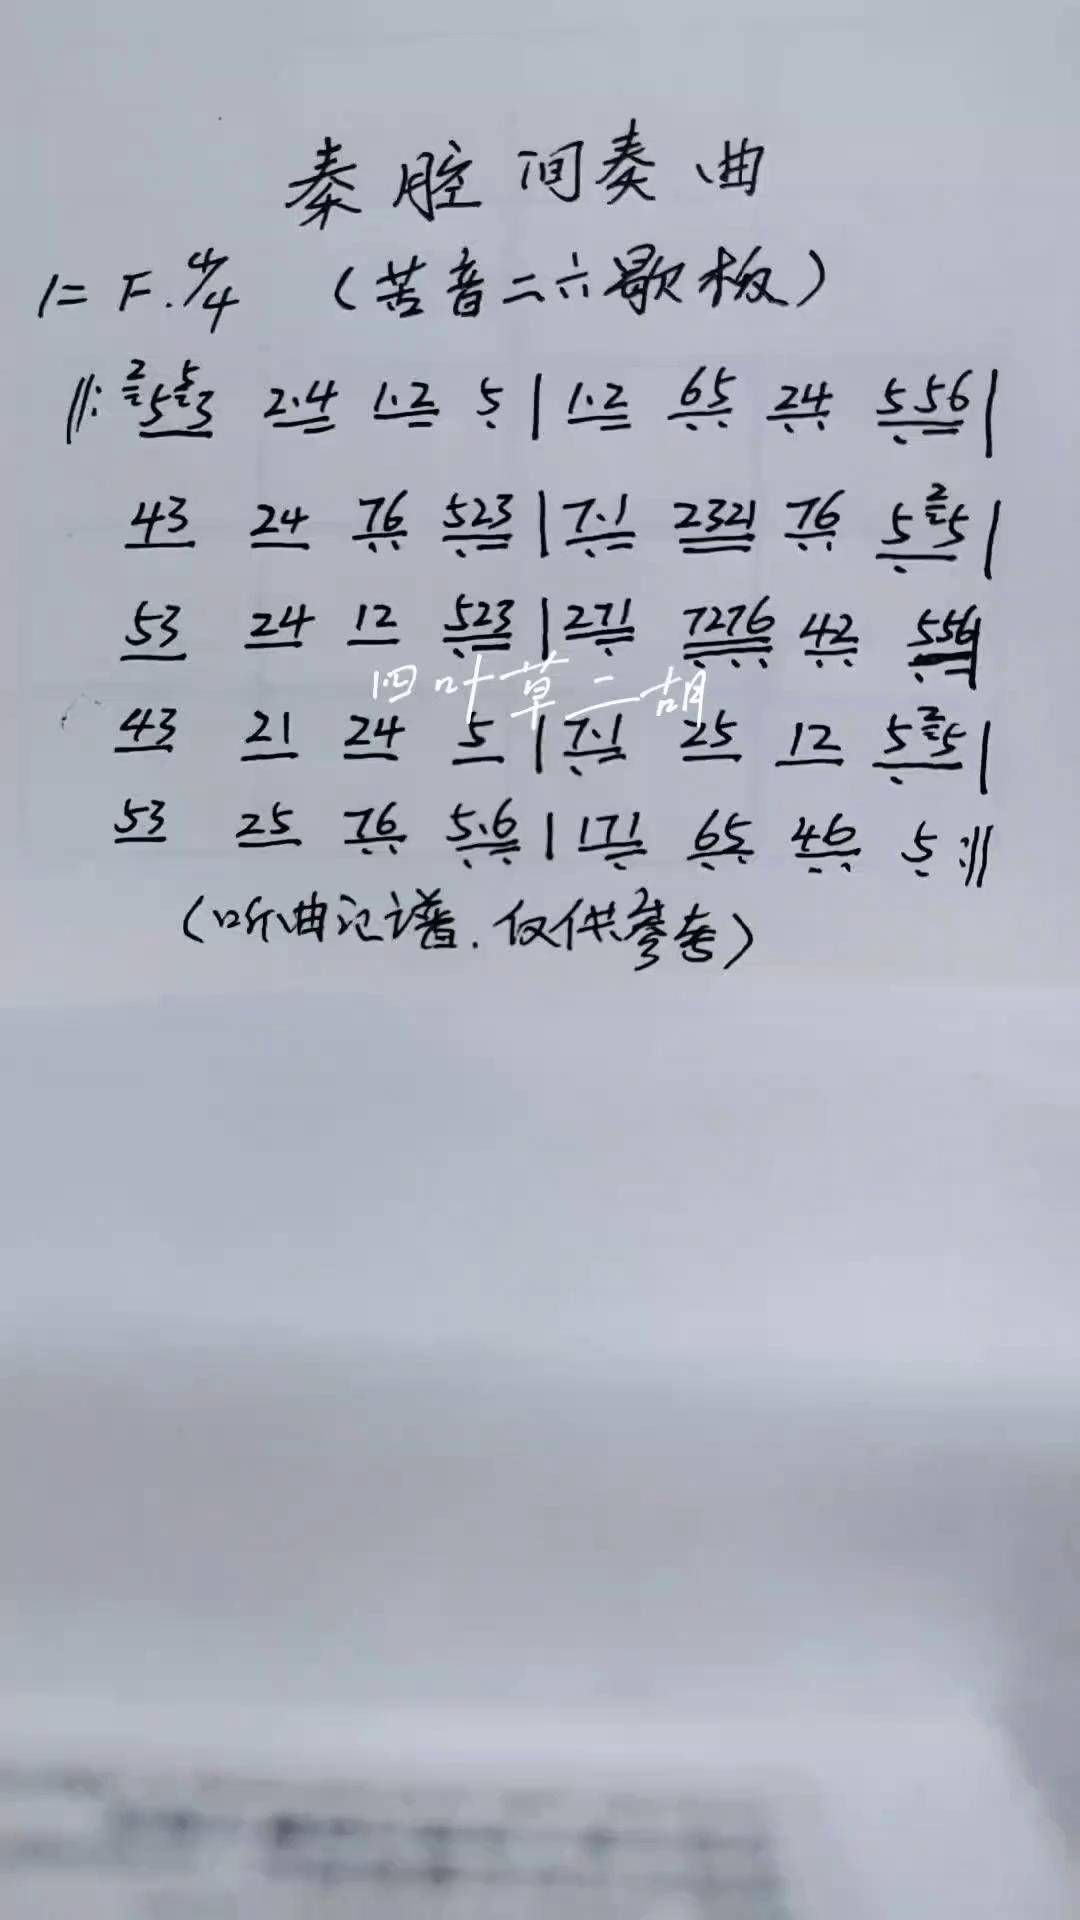 秦腔间奏曲
1=F.4/4 （苦音二六歇板）
‖: ²5⁵3 2.4 1.2 5 | 1.2 65 24 556 |
43 24 76 523 | 7.1 2321 76 5²5 |
53 24 12 523 | 271 7276 42 556 |
四叶草二胡
43 21 24 5 | 7.1 25 12 5²5 |
53 25 76 5.6 | 171 65 46 5 :‖
（听曲记谱.仅供参考）